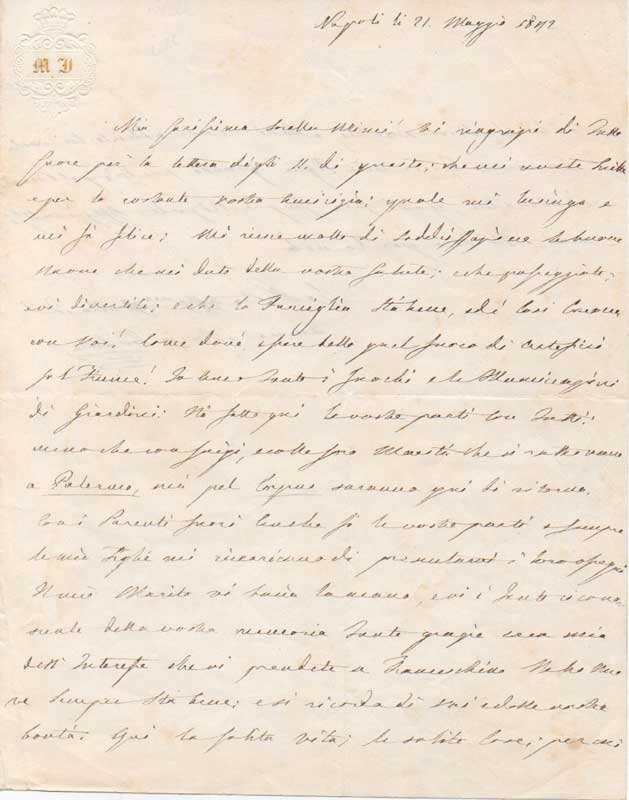 M I
Napoli li 21. Maggio 1842
Mia Carissima sorella Mimì! Vi ringrazio di tutto
Cuore per la lettera degli 11. di questo; che mi avete scritta
e per la costante vostra amicizia; quale mi lusinga e
mi fà felice; Mi viene molto di soddisfazione le buone
nuove che mi date della vostra salute; e che passeggiate;
e vi divertite; e che la Famiglia stà bene, ed è così buona
con Voi! Come dové essere bello quel fuoco di artificio
sul Fiume! Io amo tanto i fuochi e le Illuminazioni
di Giardini. Hò fatto quì le vostre parti con tutti;
meno che con Luigi, e colle loro Maestà che si trovano
a Palermo, mà pel Corpus saranno quì di ritorno.
Coi Parenti fuori anche fò le vostre parti e sempre
le mie Figlie mi incaricano di presentarvi i loro ossequi
Il mio Marito vi bacia la mano, e vi è tanto ricono-
scente della vostra memoria tante grazie cara mia
dell'Interesse che vi prendete a Franceschino
ve sempre stà bene; e si ricorda di voi e delle vostre
bontà. Quì la solita vita; le solite cose; per mi